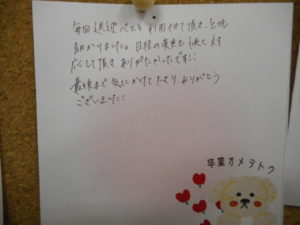 毎回送迎バスを利用させて頂き、とても
助かりました。日程の変更も快く対
応して頂き ありがたかったです!!
最後まで気にかけて下さり ありがとう
ございました!
卒業オメデトウ